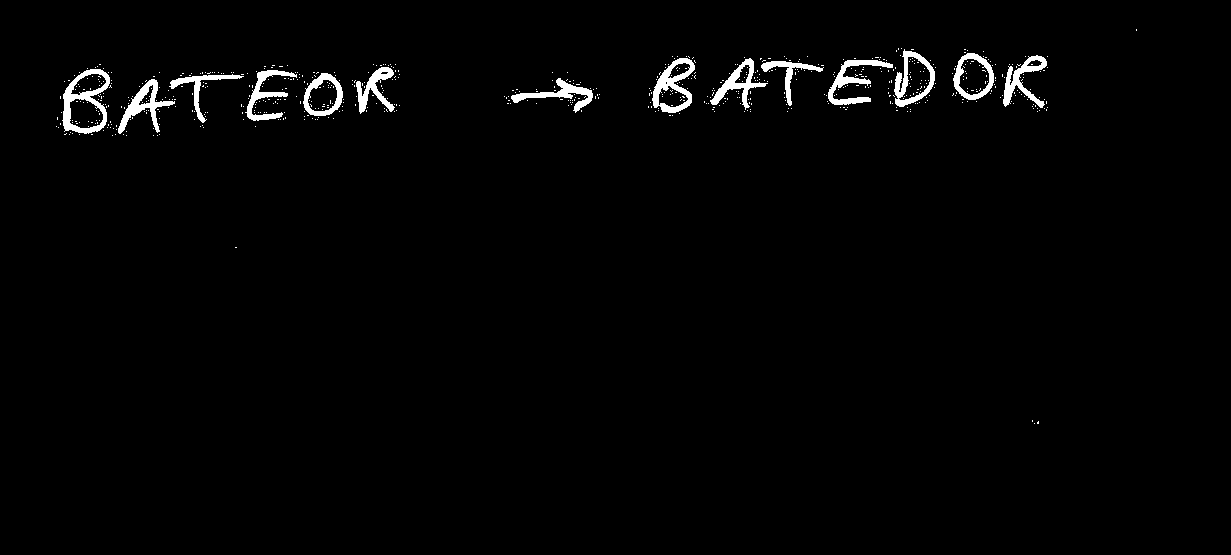 BATEOR → BATEDOR